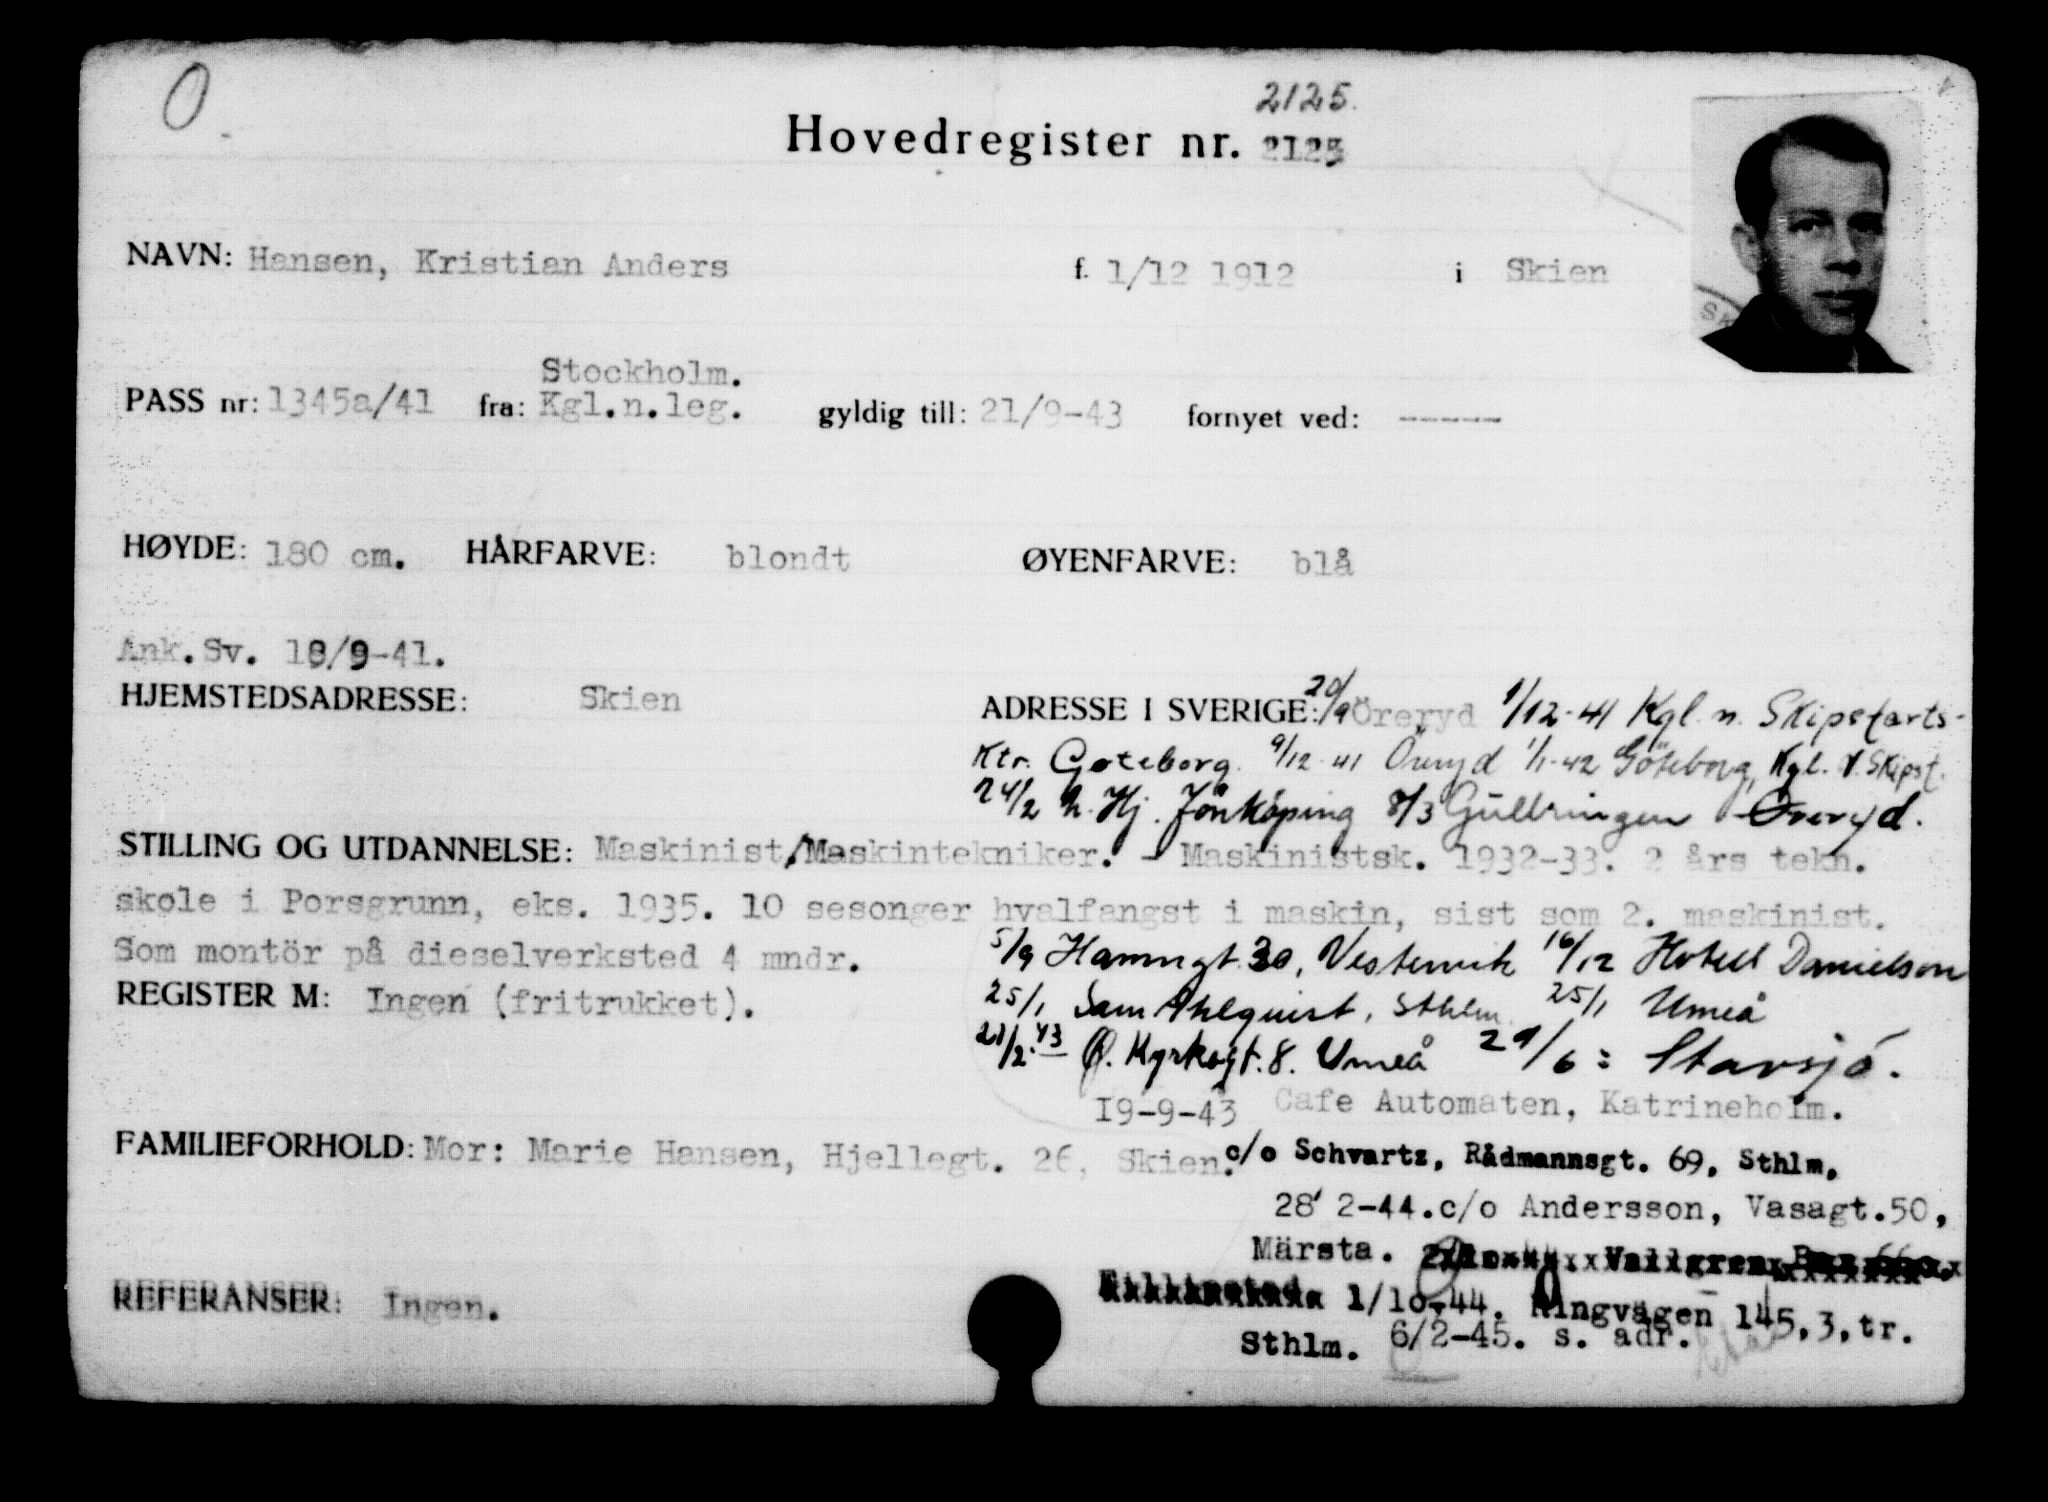 O
2125.
Hovedregister nr. 2125
NAVN: Hansen, Kristian Anders f. 1/12 1912 i Skien
Stockholm.
PASS nr: 1345a/41 fra: Kgl.n.leg. gyldig till: 21/9-43 fornyet ved: -----
HØYDE: 180 cm. HÅRFARVE: blondt ØYENFARVE: blå
Ank.Sv. 18/9-41.
HJEMSTEDSADRESSE: Skien
ADRESSE I SVERIGE: 20/9 Öreryd 1/12-41 Kgl. n. Skipsfarts-
Ktr. Göteborg. 9/12-41 Öreryd 1/1-42 Göteborg, Kgl. N. Skipsf.
24/2 N. Hj. Jönköping 8/3 Gullringen Öreryd.
STILLING OG UTDANNELSE: Maskinist/Maskintekniker. - Maskinistsk. 1932-33. 2 års tekn.
skole i Porsgrunn, eks. 1935. 10 sesonger hvalfangst i maskin, sist som 2. maskinist.
Som montör på dieselverksted 4 mndr.
5/9 Hamngt. 30, Vestervik 16/12 Hotell Danielson
REGISTER M: Ingen (fritrukket).
25/1 Sam Ahlquist, Sthlm. 25/1 Umeå
21/2.43 Ø. Kyrkogt. 8. Umeå 29/6: Stavsjö.
19-9-43 Cafe Automaten, Katrineholm.
FAMILIEFORHOLD: Mor: Marie Hansen, Hjellegt. 26, Skien.
c/o Schvartz, Rådmannsgt. 69, Sthlm.
28 2-44.c/o Andersson, Vasagt.50,
Märsta.
REFERANSER: Ingen.
1/10-44. Ringvägen 145,3,tr.
Sthlm. 6/2-45. s. adr.